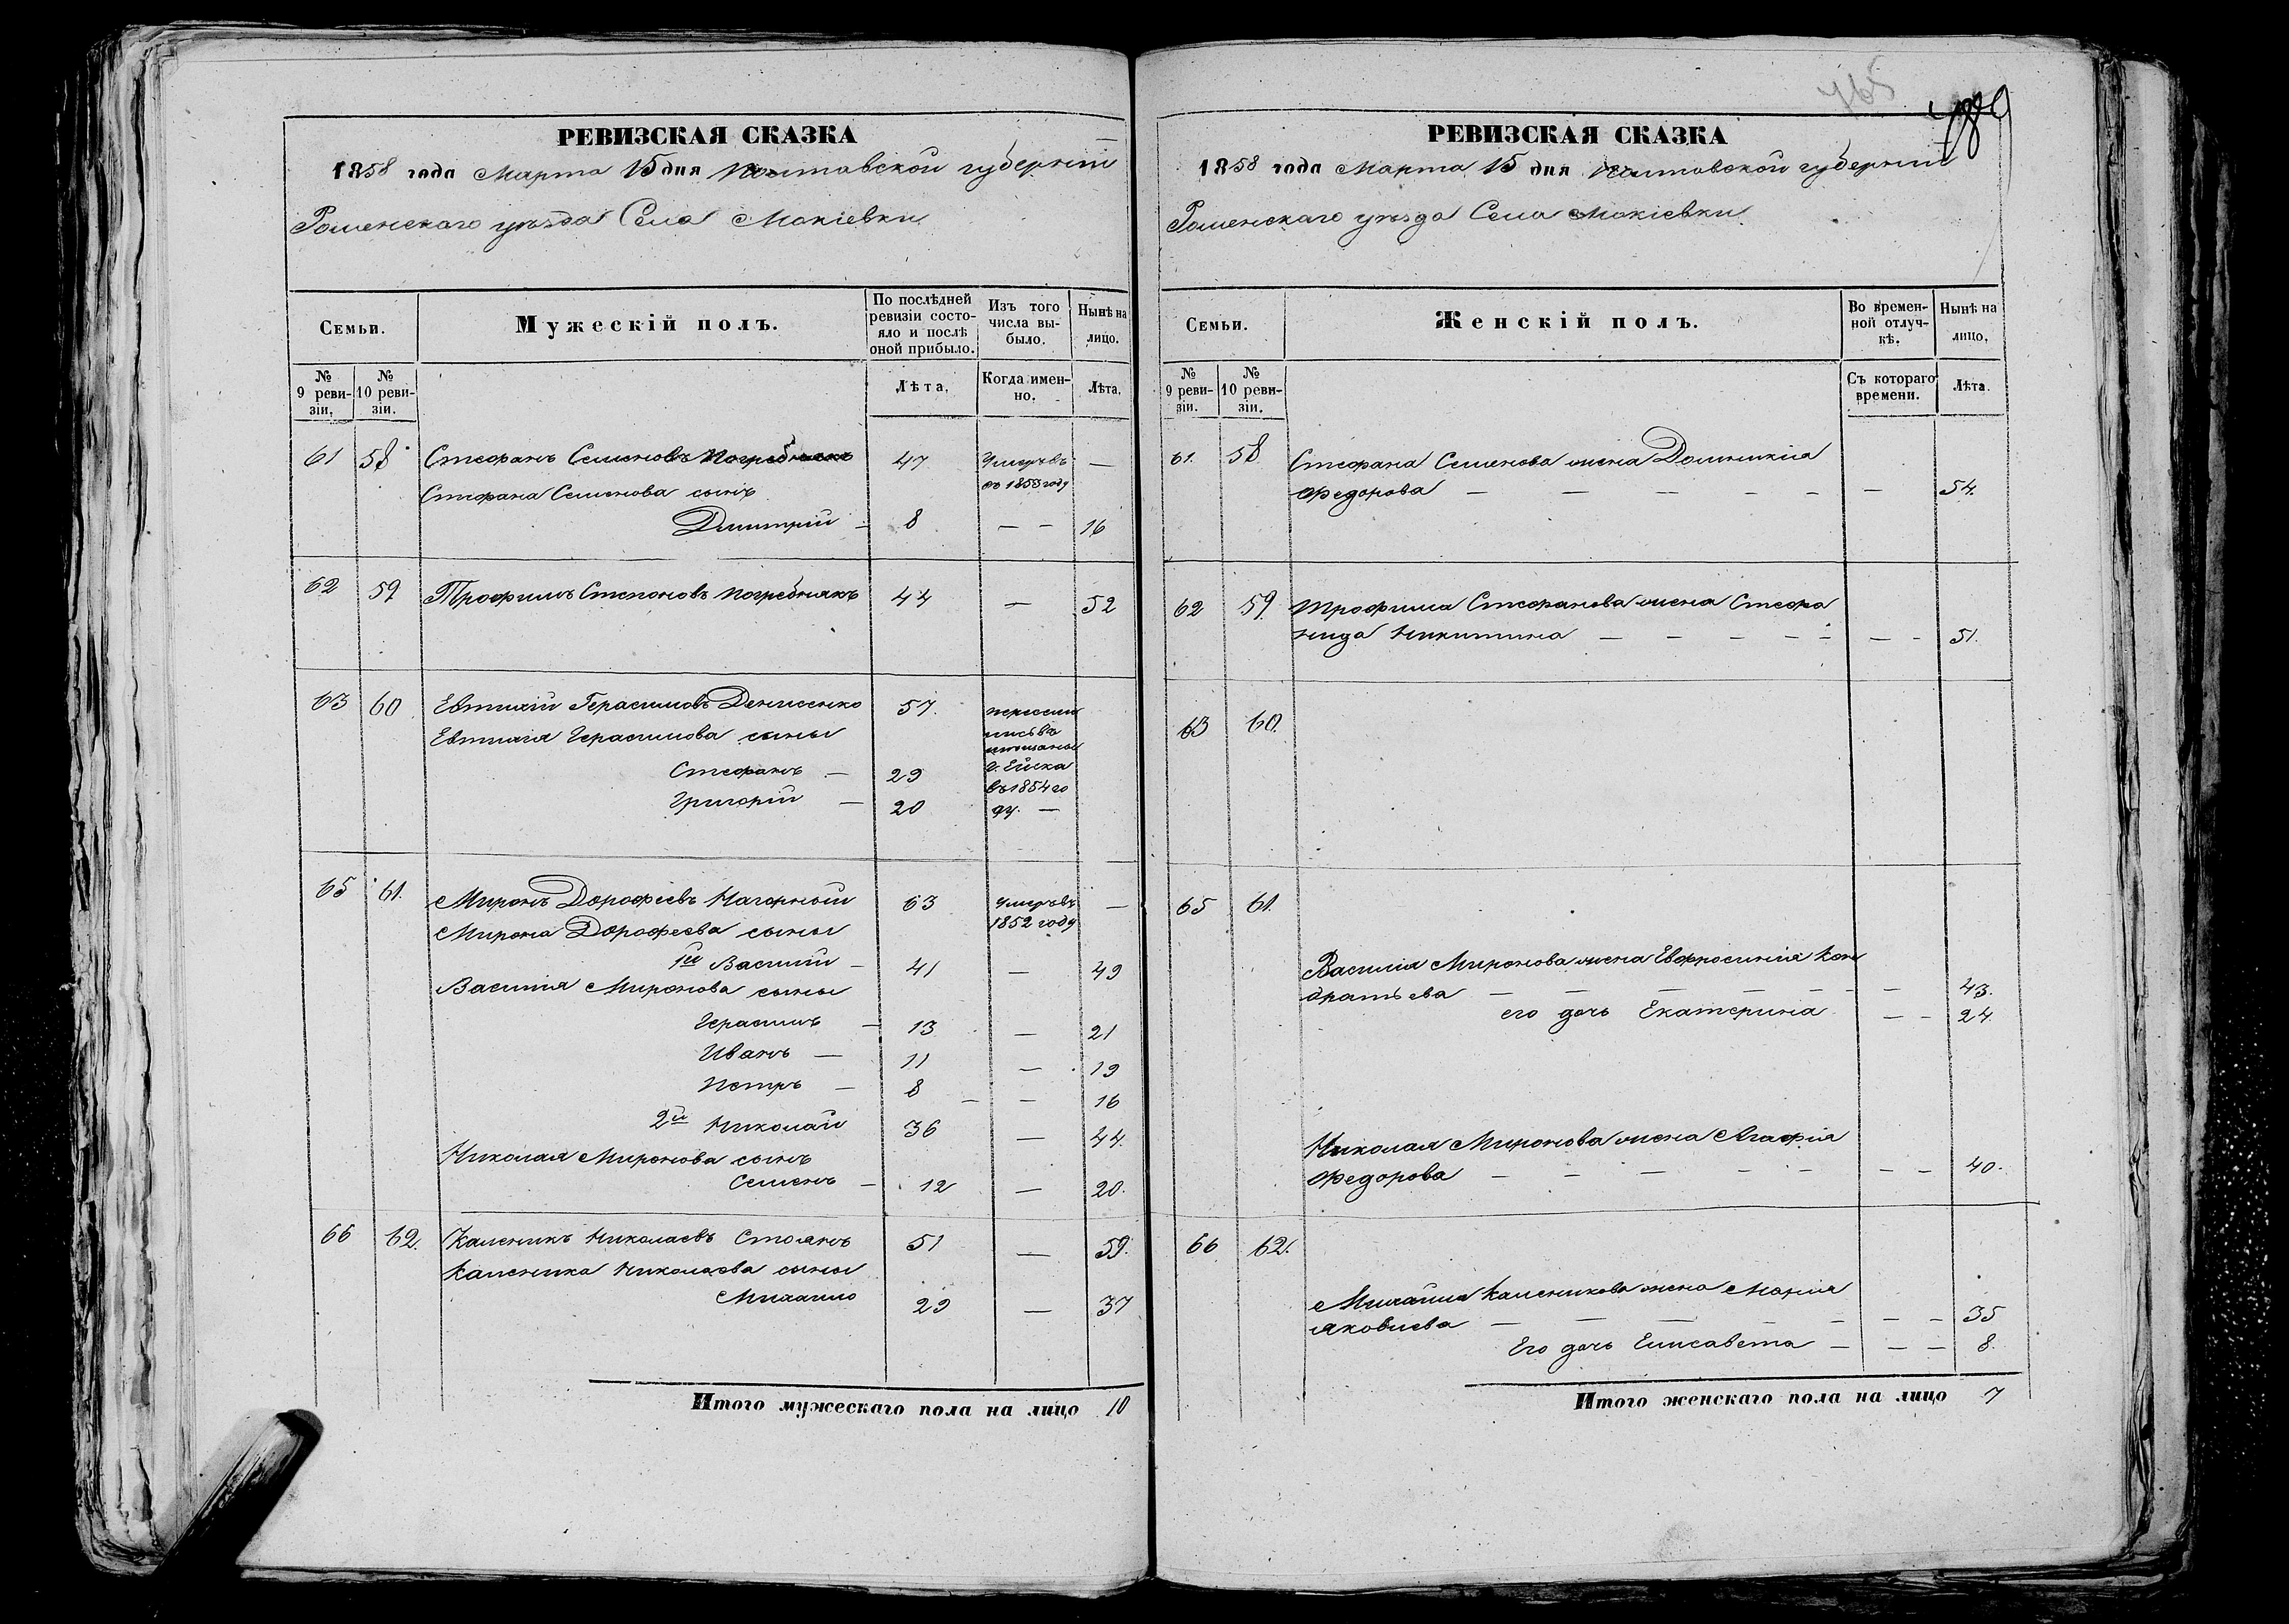 РЕВИЗСКАЯ СКАЗКА
1858 года Марта 15 дня Полтавской губерніи
Роменскаго уѣзда Села Мокіевки
Семьи.
Мужескій полъ.
По послѣдней ревизіи состо-
яло и послѣ
оной прибыло.
Изъ того
числа вы-
было.
Нынѣ на
лицо.
№
9 реви-
зіи.
№
10 реви-
зіи.
Лѣта.
Когда имен-
но.
Лѣта.
61 58 Стефанъ Семеновъ Погребнякъ 47 Умеръ въ —
Стефана Семенова сынъ въ 1853 году
Дмитрій — 8 — — 16
62 59 Трофимъ Степановъ Погребнякъ 44 — 52
63 60 Евтихій Герасимовъ Денисенко 57. пересели
Евтихія Герасимова сыны лись въ
мещаны
Стефанъ — 29 г. Ейска
въ 1854 го
Григорій — 20 ду. —
65 61. Миронъ Дорофеевъ Нагорный 63 умеръ въ —
Мирона Дорофеева сыны 1852 году
1й Василій — 41 — 49
Василія Миронова сыны
Герасимъ — 13 — 21
Иванъ — 11 — 19
Петръ — 8 — — 16
2й Николай 36 — 44.
Николая Миронова сынъ
Семенъ — 12 — 20.
66 62. Каленикъ Николаевъ Столянъ 51 — 59.
Каленика Николаева сыны
Михаило 29 — 37
Итого мужескаго пола на лицо 10
765
РЕВИЗСКАЯ СКАЗКА
1858 года Марта 15 дня Полтавской губерніи
Роменскаго уѣзда Села Мокіевки
Семьи.
Женскій полъ.
Во времен-
ной отлуч-
кѣ.
Нынѣ на
лицо.
№
9 реви-
зіи.
№
10 реви-
зіи.
Съ котораго
времени.
Лѣта.
61. 58 Стефана Семенова жена Домникія
Федорова — — — — — — 54.
62 59. Трофима Стефанова жена Стефа
нида Никитина — — — — — — - 51.
63 60.
65 61.
Василія Миронова жена Евфросинія Кон
дратьева — — — — — — 43.
его дочь Екатерина — — 24
Николая Миронова жена Агафія
Федорова — — — — — — — 40.
66 62.
Михаила Каленикова жена Марія
Яковлева — — — — — — — 35
Его дочь Елисавета — — — 8.
Итого женскаго пола на лицо 7